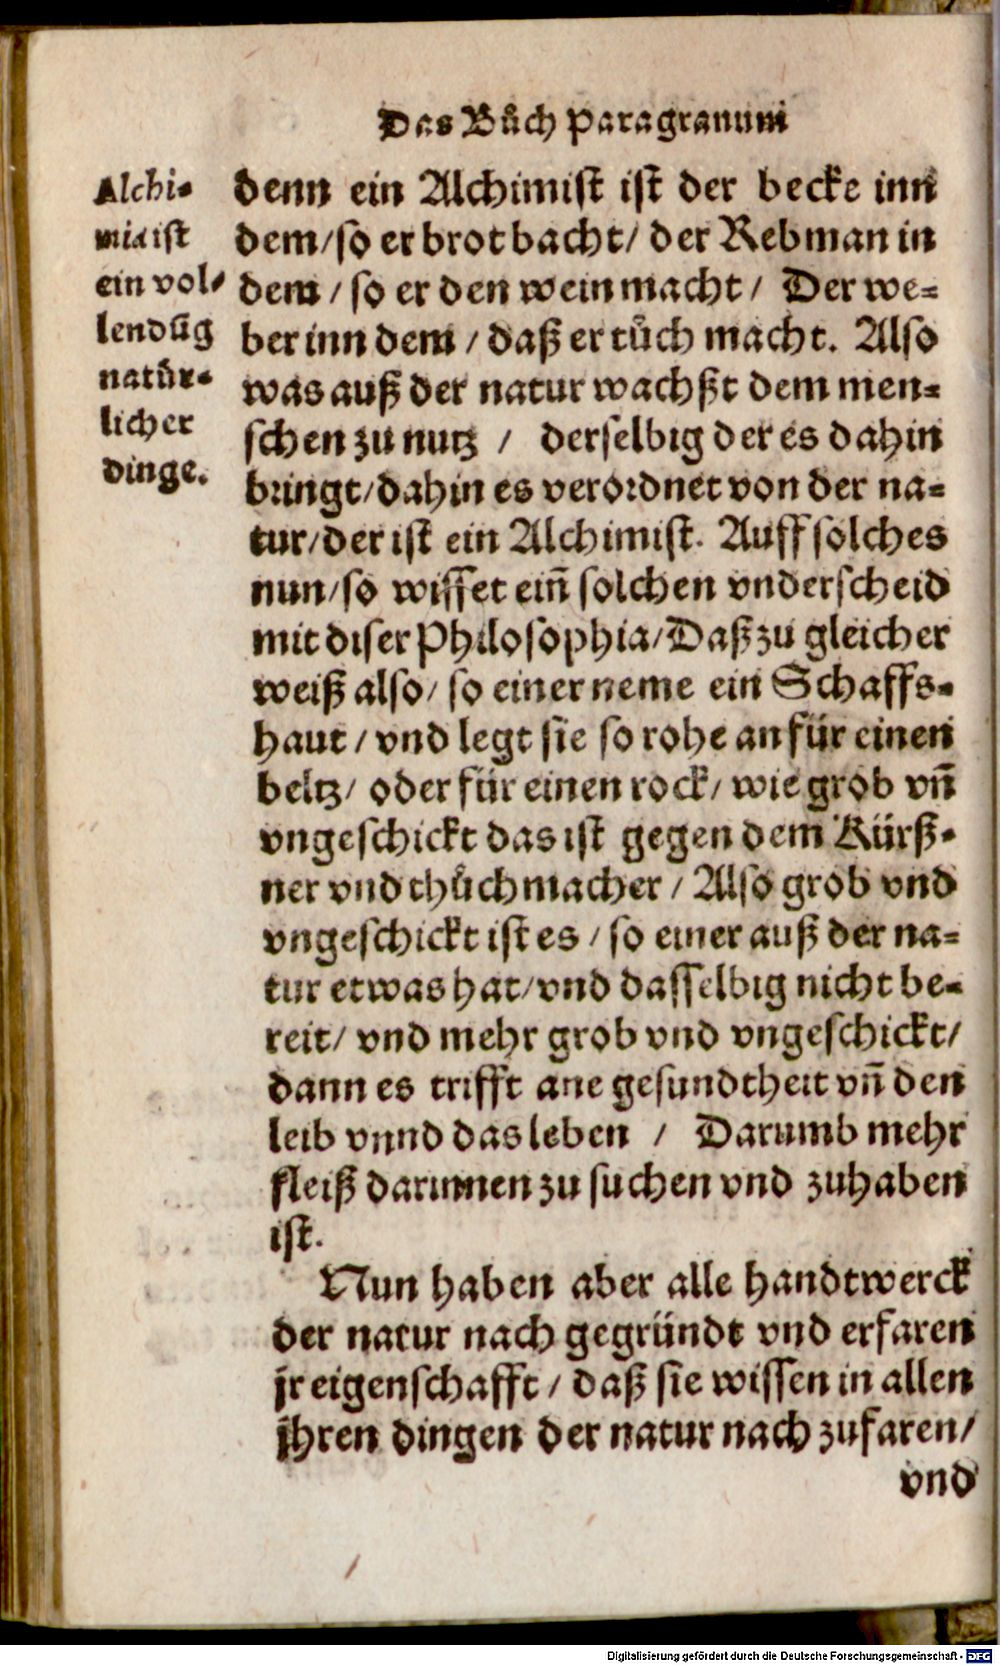 Das Bůch Paragranum
Alchi-
mia ist
ein vol-
lendũg
natůr-
licher
dinge.
denn ein Alchimist ist der becke inn
dem/so er brot bacht/ der Rebman in
dem/so er den wein macht/ Der we-
ber inn dem/daß er tůch macht. Also
was auß der natur wachßt dem men-
schen zu nutz / derselbig der es dahin
bringt/dahin es verordnet von der na-
tur/der ist ein Alchimist. Auff solches
nun/so wisset ein̄ solchen vnderscheid
mit diser Philosophia/Daß zu gleicher
weiß also/ so einer neme ein Schaffs-
haut/vnd legt sie so rohe an für einen
beltz/ oder für einen rock/ wie grob vn̄
vngeschickt das ist gegen dem Kürß-
ner vnd thůchmacher/ Also grob vnd
vngeschickt ist es/so einer auß der na-
tur etwas hat/vnd dasselbig nicht be-
reit/ vnd mehr grob vnd vngeschickt/
dann es trifft ane gesundtheit vn̄ den
leib vnnd das leben / Darumb mehr
fleiß darinnen zu suchen vnd zuhaben
ist.
Nun haben aber alle handtwerck
der natur nach gegründt vnd erfaren
jr eigenschafft/daß sie wissen in allen
jhren dingen der natur nach zufaren/
vnd
Digitalisierung gefördert durch die Deutsche Forschungsgemeinschaft - DFG